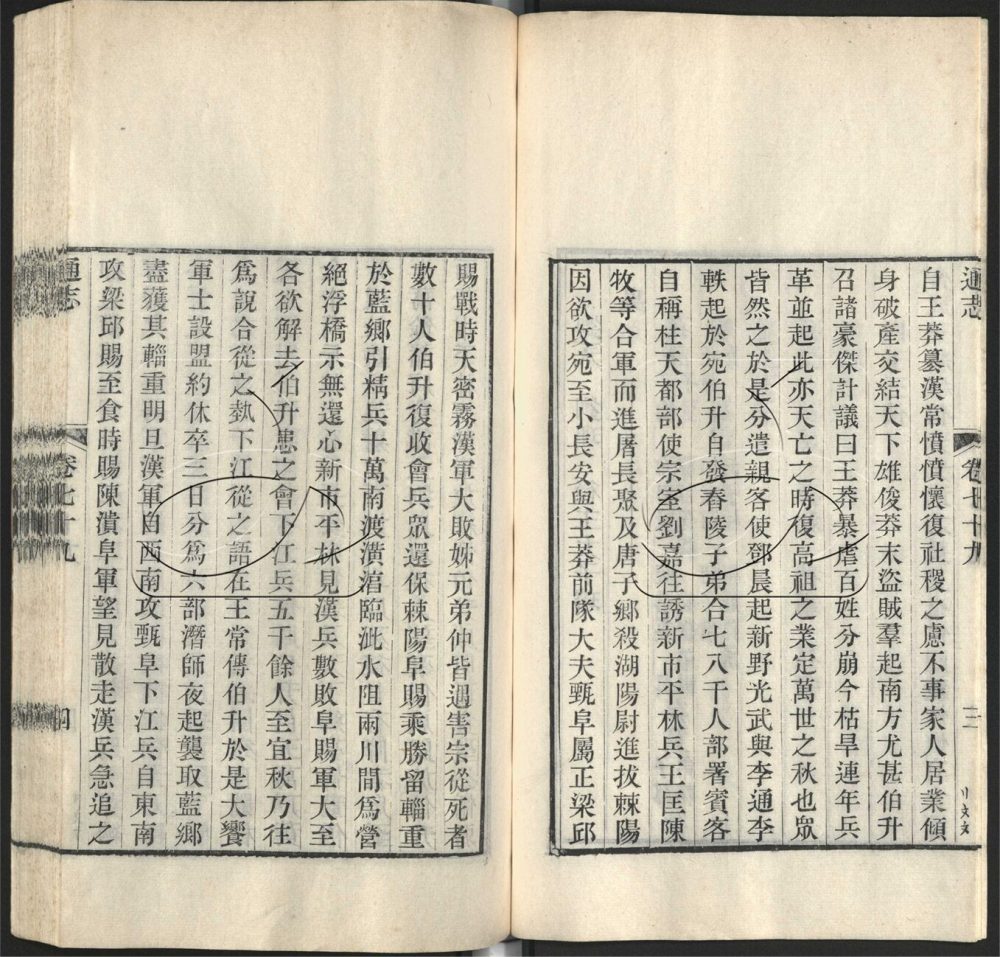 通志
卷七十九
三
自王莽篡漢常憤憤懷復社稷之慮不事家人居業傾
身破產交結天下雄俊莽末盜賊羣起南方尤甚伯升
召諸豪傑計議曰王莽暴虐百姓分崩今枯旱連年兵
革並起此亦天亡之時復高祖之業定萬世之秋也眾
皆然之於是分遣親客使鄧晨起新野光武與李通李
軼起於宛伯升自發舂陵子弟合七八千人部署賓客
自稱柱天都部使宗室劉嘉往誘新市平林兵王匡陳
牧等合軍而進屠長聚及唐子鄉殺湖陽尉進拔棘陽
因欲攻宛至小長安與王莽前隊大夫甄阜屬正梁邱
賜戰時天密霧漢軍大敗姊元弟仲皆遇害宗從死者
數十人伯升復收會兵眾還保棘陽阜賜乘勝留輜重
於藍鄉引精兵十萬南渡潢淯臨沘水阻兩川間爲營
絕浮橋示無還心新市平林見漢兵數敗阜賜軍大至
各欲解去伯升患之會下江兵五千餘人至宜秋乃往
爲說合從之埶下江從之語在王常傳伯升於是大饗
軍士設盟約休卒三日分爲六部潛師夜起襲取藍鄉
盡獲其輜重明旦漢軍自西南攻甄阜下江兵自東南
攻梁邱賜至食時賜陳潰阜軍望見散走漢兵急追之
通志
卷七十九
四